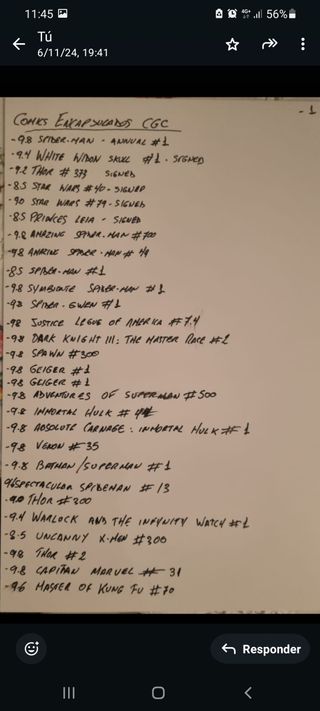 11:45
56%
Tú
6/11/24, 19:41
-1
COMICS ENCAPSULADOS CGC
-9.8 SPIDER-MAN - ANNUAL #1
-9.4 WHITE WIDOW SKULL #1 - SIGNED
-9.2 THOR #373 SIGNED
-8.5 STAR WARS #40 - SIGNED
-9.0 STAR WARS #79 - SIGNED
-8.5 PRINCES LEIA - SIGNED
-9.8 AMAZING SPIDER-MAN #700
-9.8 AMAZING SPIDER-MAN # 49
-8.5 SPIDER-MAN #1
-9.8 SYMBIOTE SPIDER-MAN #1
-9.8 SPIDER-GWEN #1
-9.8 JUSTICE LEGUE OF AMERICA #7.4
-9.8 DARK KNIGHT III: THE MASTER RACE #2
-9.8 SPAWN #300
-9.8 GEIGER #1
-9.8 GEIGER #1
-9.8 ADVENTURES OF SUPERMAN #500
-9.8 IMMORTAL HULK #
-9.8 ABSOLUTE CARNAGE: IMMORTAL HULK #1
-9.8 VENOM #35
-9.8 BATMAN/SUPERMAN #1
9.4 SPECTACULAR SPIDEMAN #13
THOR #300
-9.4 WARLOCK AND THE INFYNITY WATCH #1
-8.5 UNCANNY X-MEN #300
-9.8 THOR #2
-9.8 CAPITAN MARVEL # 31
-9.6 MASTER OF KUNG FU #70
Responder